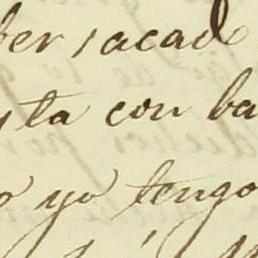 ber sacad
sta con ba
o yo tengo